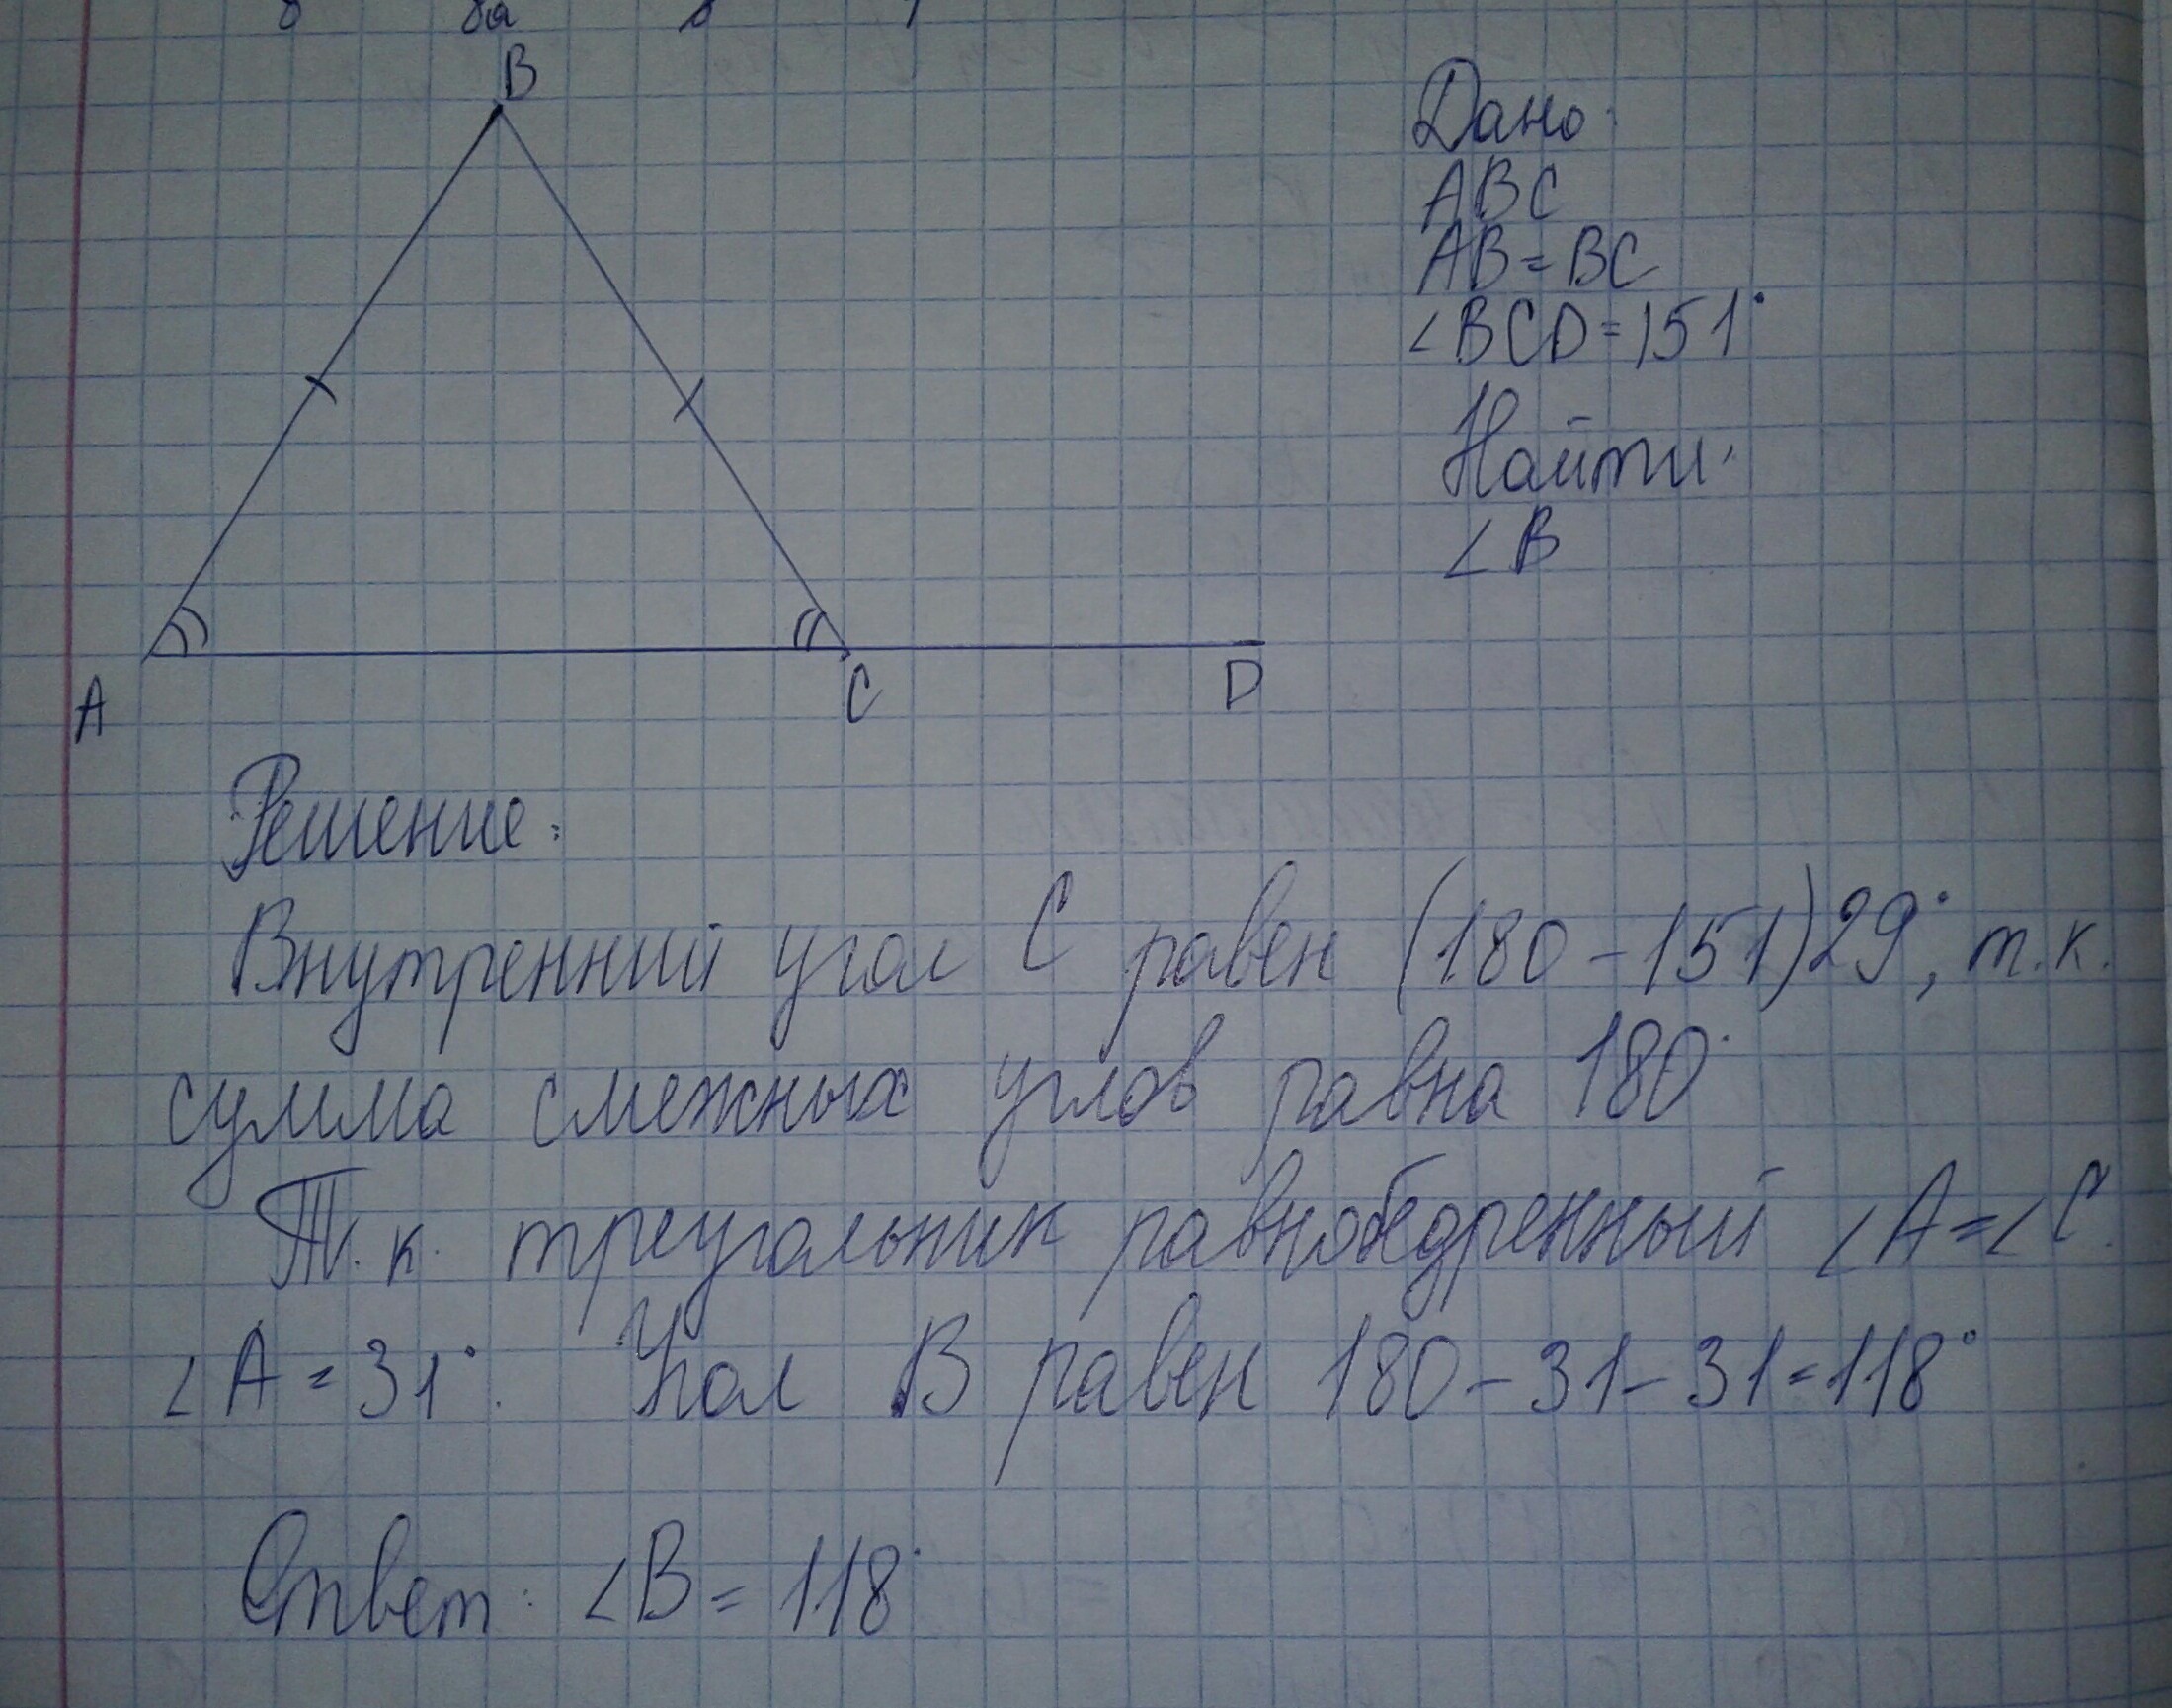 B
A
C
D
Дано:
ABC
AB=BC
∠BCD=151°
Найти:
∠B
Решение:
Внутренний угол C равен (180-151)29°, т.к.
сумма смежных углов равна 180°
Т.к. треугольник равнобедренный ∠A=∠C.
∠A=31°. Угол B равен 180-31-31=118°
Ответ: ∠B=118°